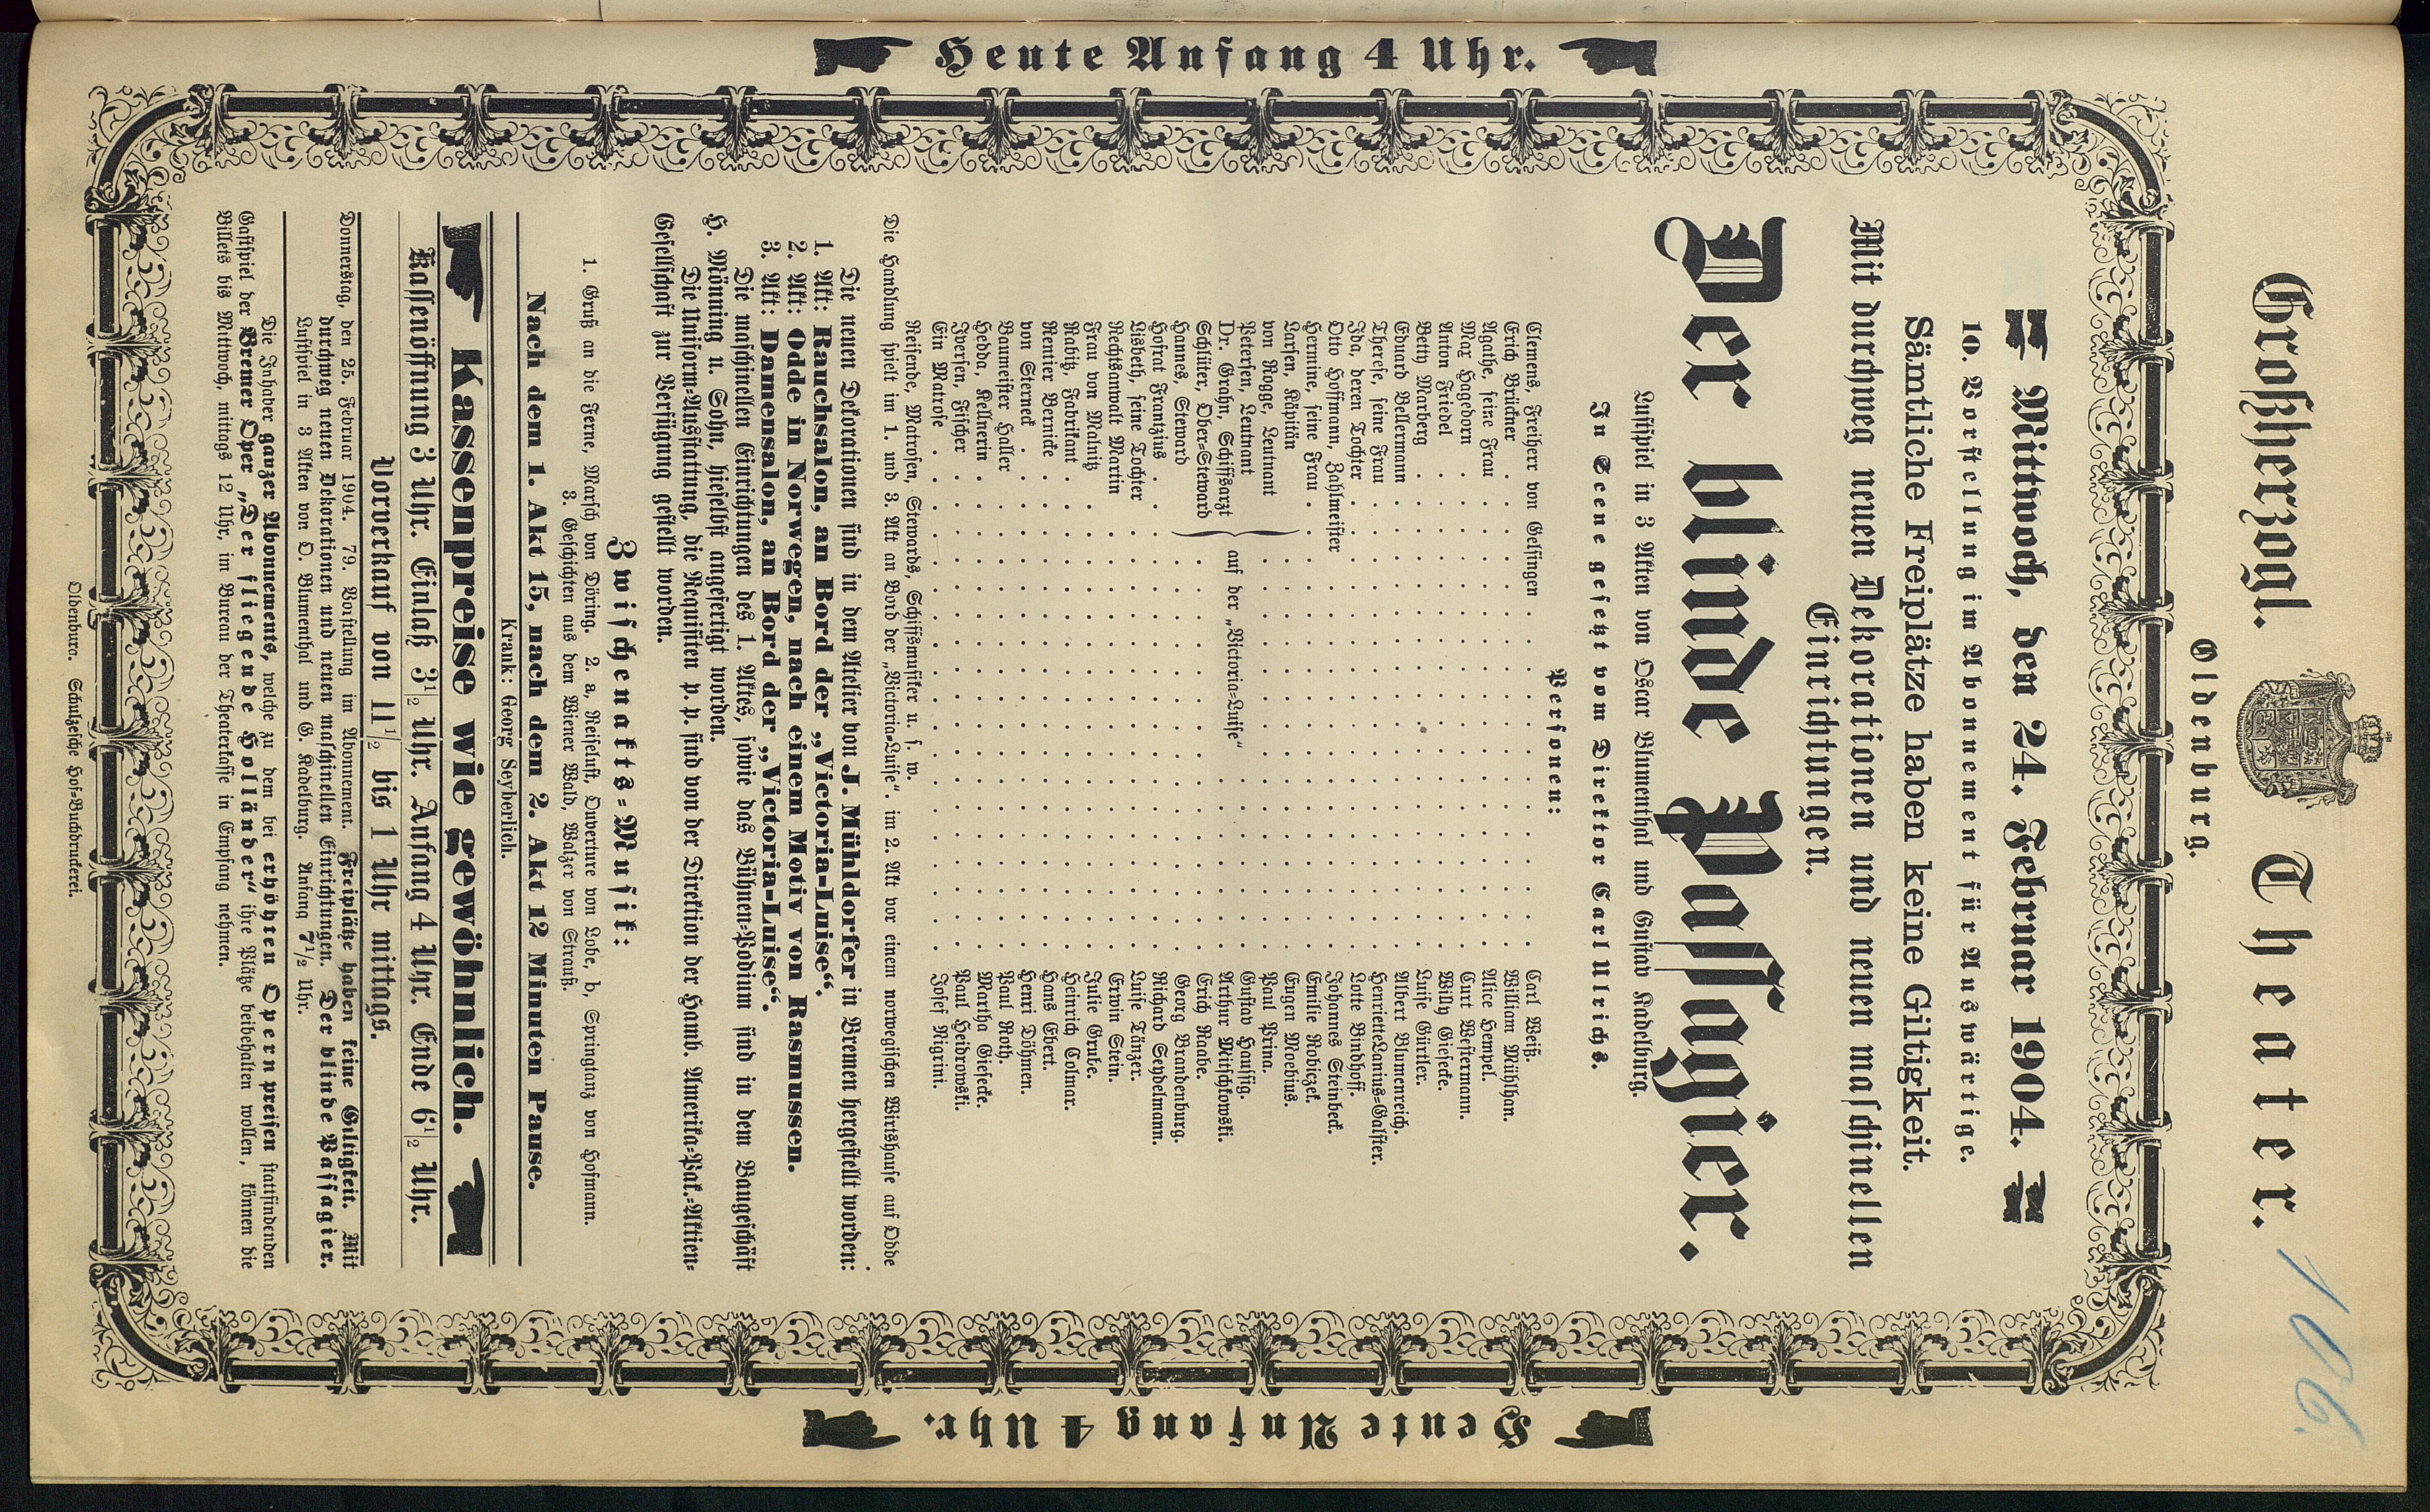 Großherzogl. Theater.
106.
Oldenburg.
Mittwoch, den 24. Februar 1904.
10. Vorstellung im Abonnement für Auswärtige.
Sämtliche Freiplätze haben keine Giltigkeit.
Mit durchweg neuen Dekorationen und neuen maschinellen
Einrichtungen.
Der blinde Passagier.
Lustspiel in 3 Akten von Oscar Blumenthal und Gustav Kadelburg.
In Scene gesetzt vom Direktor Carl Ulrichs.
Personen:
Clemens, Freiherr von Gelsingen . . . Carl Weiß.
Erich Brückner . . . William Mühlhan.
Agathe, seine Frau . . . Alice Hempel.
Max Hagedorn . . . Curt Westermann.
Anton Friedel . . . Willy Giesecke.
Betty Marberg . . . Luise Gürtler.
Eduard Bellermann . . . Albert Blumenreich.
Therese, seine Frau . . . Henriette Lanius-Galster.
Ida, deren Tochter . . . Lotte Bindhoff.
Otto Hoffmann, Zahlmeister . . . Johannes Steinbeck.
Hermine, seine Frau . . . Emilie Robiczek.
Larsen, Kapitän . . . Eugen Moebius.
von Rogge, Leutnant . . . Paul Prina.
Petersen, Leutnant . . . Gustav Haussig.
Dr. Grahn, Schiffsarzt } auf der „Victoria-Luise“ . . . Arthur Mitschlowski.
Schlüter, Ober-Steward . . . Erich Raabe.
Hannes, Steward . . . Georg Brandenburg.
Hofrat Frantzius . . . Richard Seydelmann.
Lisbeth, seine Tochter . . . Luise Tänzer.
Rechtsanwalt Martin . . . Erwin Stein.
Frau von Malnitz . . . Julie Grube.
Rabitz, Fabrikant . . . Heinrich Colmar.
Rentier Bernicke . . . Hans Ebert.
von Sterneck . . . Henri Döhmen.
Baumeister Haller . . . Paul Roth.
Hedda, Kellnerin . . . Martha Giesecke.
Iversen, Fischer . . . Paul Heidrowski.
Ein Matrose . . . Josef Nigrini.
Reisende, Matrosen, Stewards, Schiffsmusiker u. s. w.
Die Handlung spielt im 1. und 3. Akt an Bord der „Victoria-Luise“. im 2. Akt vor einem norwegischen Wirtshause auf Odde
Die neuen Dekorationen sind in dem Atelier von J. Mühldorfer in Bremen hergestellt worden:
1. Akt: Rauchsalon, an Bord der „Victoria-Luise“.
2. Akt: Odde in Norwegen, nach einem Motiv von Rasmussen.
3. Akt: Damensalon, an Bord der „Victoria-Luise“.
Die maschinellen Einrichtungen des 1. Aktes, sowie das Bühnen-Podium sind in dem Baugeschäft
H. Mönning u. Sohn, hieselbst angefertigt worden.
Die Uniform-Ausstattung, die Requisiten p. p. sind von der Direktion der Hamb. Amerika-Pak.-Aktien-
Gesellschaft zur Verfügung gestellt worden.
Zwischenakts-Musik:
1. Gruß an die Ferne, Marsch von Döring. 2. a, Reiselust, Ouverture von Lobe, b, Springtanz von Hofmann.
3. Geschichten aus dem Wiener Wald, Walzer von Strauß.
Nach dem 1. Akt 15, nach dem 2. Akt 12 Minuten Pause.
Krank: Georg Seyberlich.
Kassenpreise wie gewöhnlich.
Kassenöffnung 3 Uhr. Einlaß 3 1/2 Uhr. Anfang 4 Uhr. Ende 6 1/2 Uhr.
Vorverkauf von 11 1/2 bis 1 Uhr mittags.
Donnerstag, den 25. Februar 1904. 79. Vorstellung im Abonnement. Freiplätze haben keine Giltigkeit. Mit
durchweg neuen Dekorationen und neuen maschinellen Einrichtungen. Der blinde Passagier.
Lustspiel in 3 Akten von O. Blumenthal und G. Kadelburg. Anfang 7 1/2 Uhr.
Die Inhaber ganzer Abonnements, welche zu dem bei erhöhten Opernpreisen stattfindenden
Gastspiel der Bremer Oper „Der fliegende Holländer“ ihre Plätze beibehalten wollen, können die
Billets bis Mittwoch, mittags 12 Uhr, im Bureau der Theaterkasse in Empfang nehmen.
Oldenburg. Schulzesche Hof-Buchdruckerei.
Heute Anfang 4 Uhr.
Heute Anfang 4 Uhr.